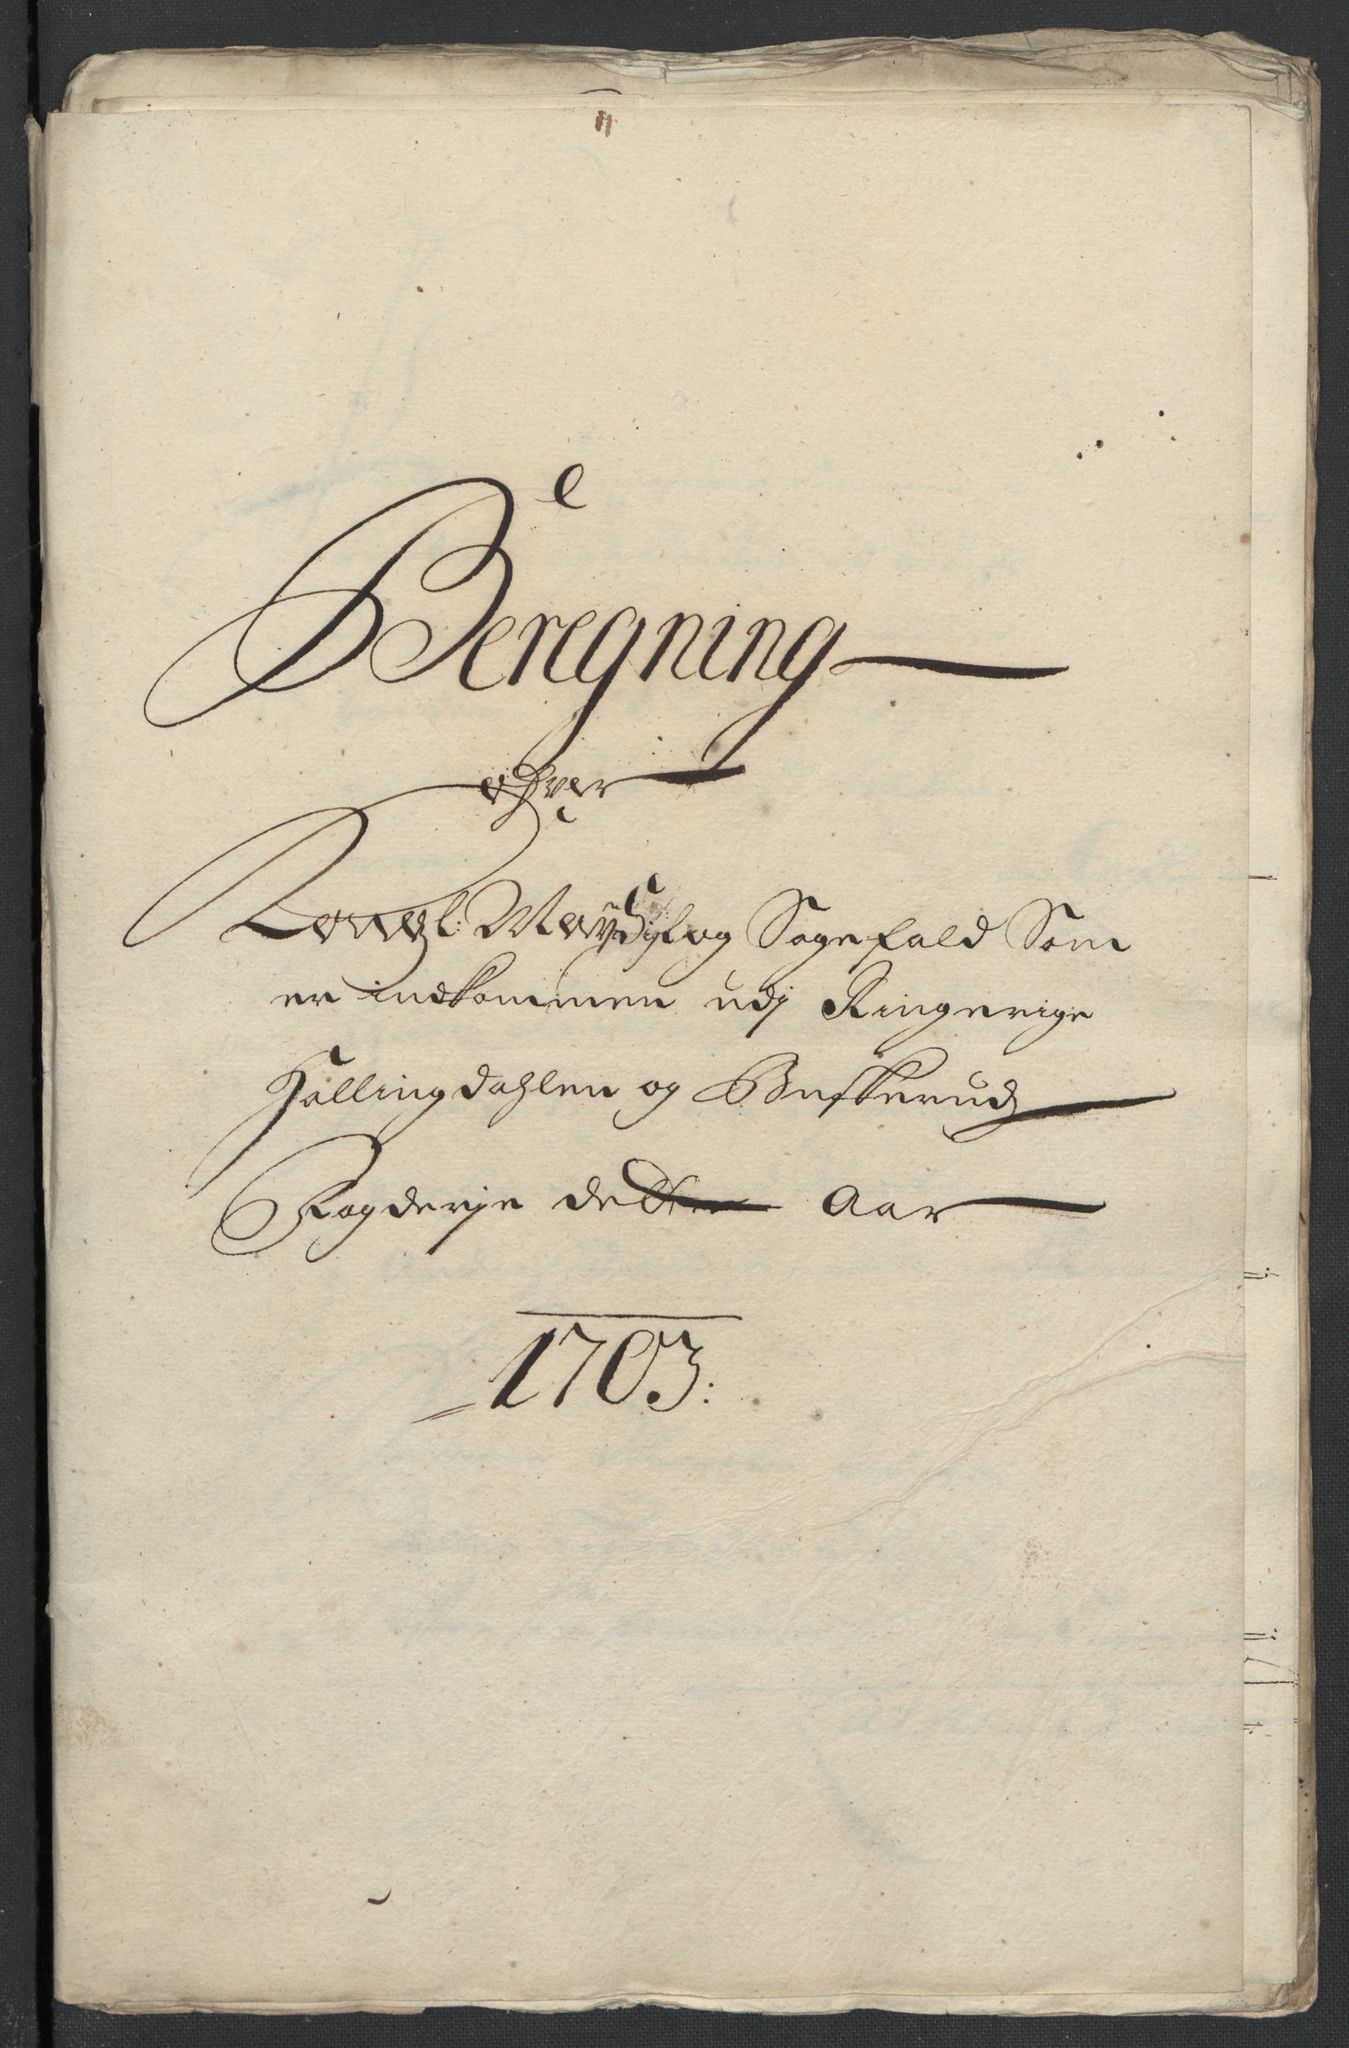 e
Beregning
ofver
Kongl: May: og Sagefald Som
er indkommen udj Ringerige
Hallingdahlen og Buskerud
Fogderje dette Aar
1703: